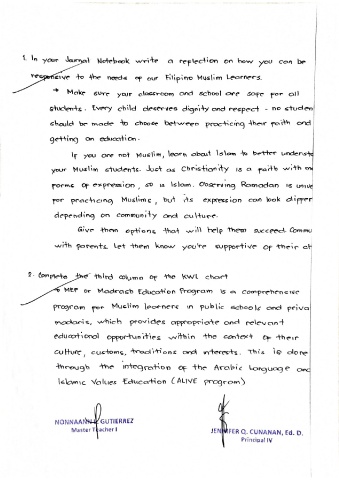 1. In your Journal Notebook write a reflection on how you can be
responsive to the needs of our Filipino Muslim Learners.
→ Make sure your classroom and school are safe for all
students. Every child deserves dignity and respect - no studen
should be made to choose between practicing their faith and
getting an education.
If you are not Muslim, learn about Islam to better understa
your Muslim students. Just as Christianity is a faith with
forms of expression, so is Islam. Observing Ramadan is
for practicing Muslims, but its expression can look differ
depending on community and culture.
Give them options that will help them succeed. Commu
with parents. Let them know you're supportive of their
2. Complete the third column of the KWL chart
→ MEP or Madrasah Education Program is a comprehensive
program for Muslim learners in public schools and priva
madaris, which provides appropriate and relevant
educational opportunities within the context of their
culture, customs, traditions and interests. This is done
through the integration of the Arabic Language and
Islamic Values Education (ALIVE program)
NONNAANN GUTIERREZ
Master Teacher I
JENNIFER Q. CUNANAN, Ed. D.
Principal IV